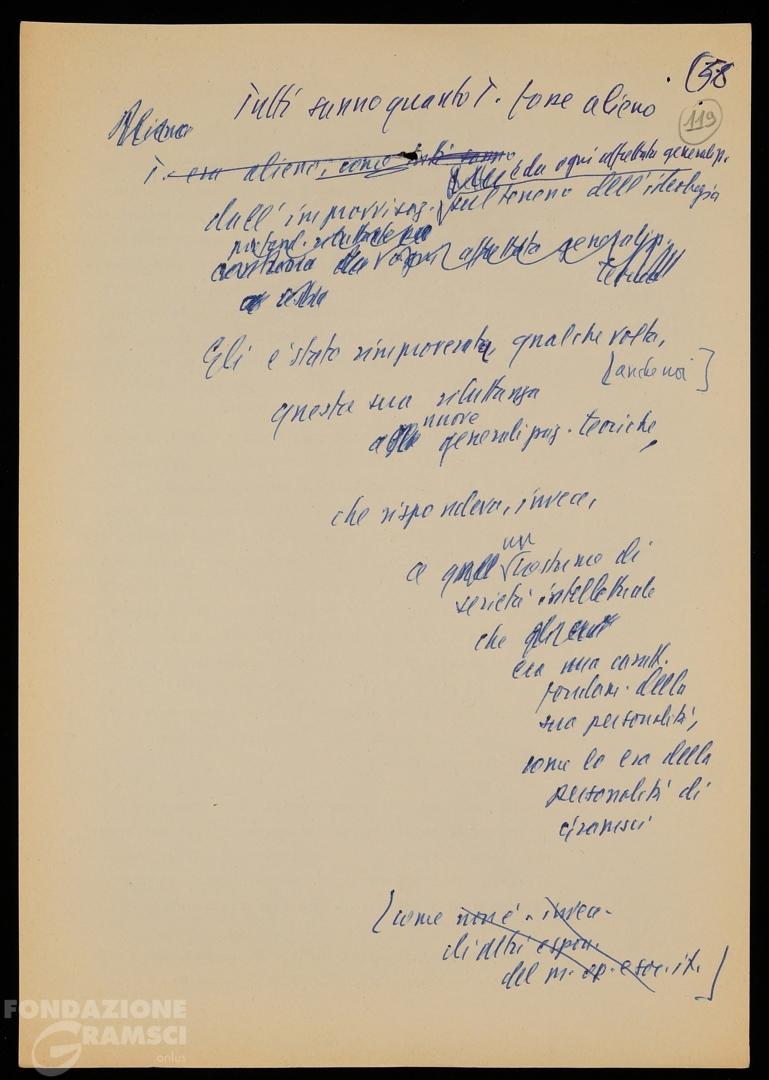 (58
119
Tutti sanno quanto T. fosse alieno
T. era alieno, come tutti sanno
e da ogni affrettata generalizz.
dall'improvvisaz. sul terreno dell'ideologia
da ogni affrettata generalizz.
Gli è stato rimproverata, qualche volta,
[anche noi]
questa sua riluttanza
nuove
a generalizzaz. teoriche,
che rispondeva, invece,
un
a quell costume di
serietà intellettuale
che
era una caratt.
fondam. della
sua personalità,
come lo era della
personalità di
Gramsci
[come non è, invece,
di altri espon.
del m. op. e soc. it.]
FONDAZIONE
GRAMSCI
onlus